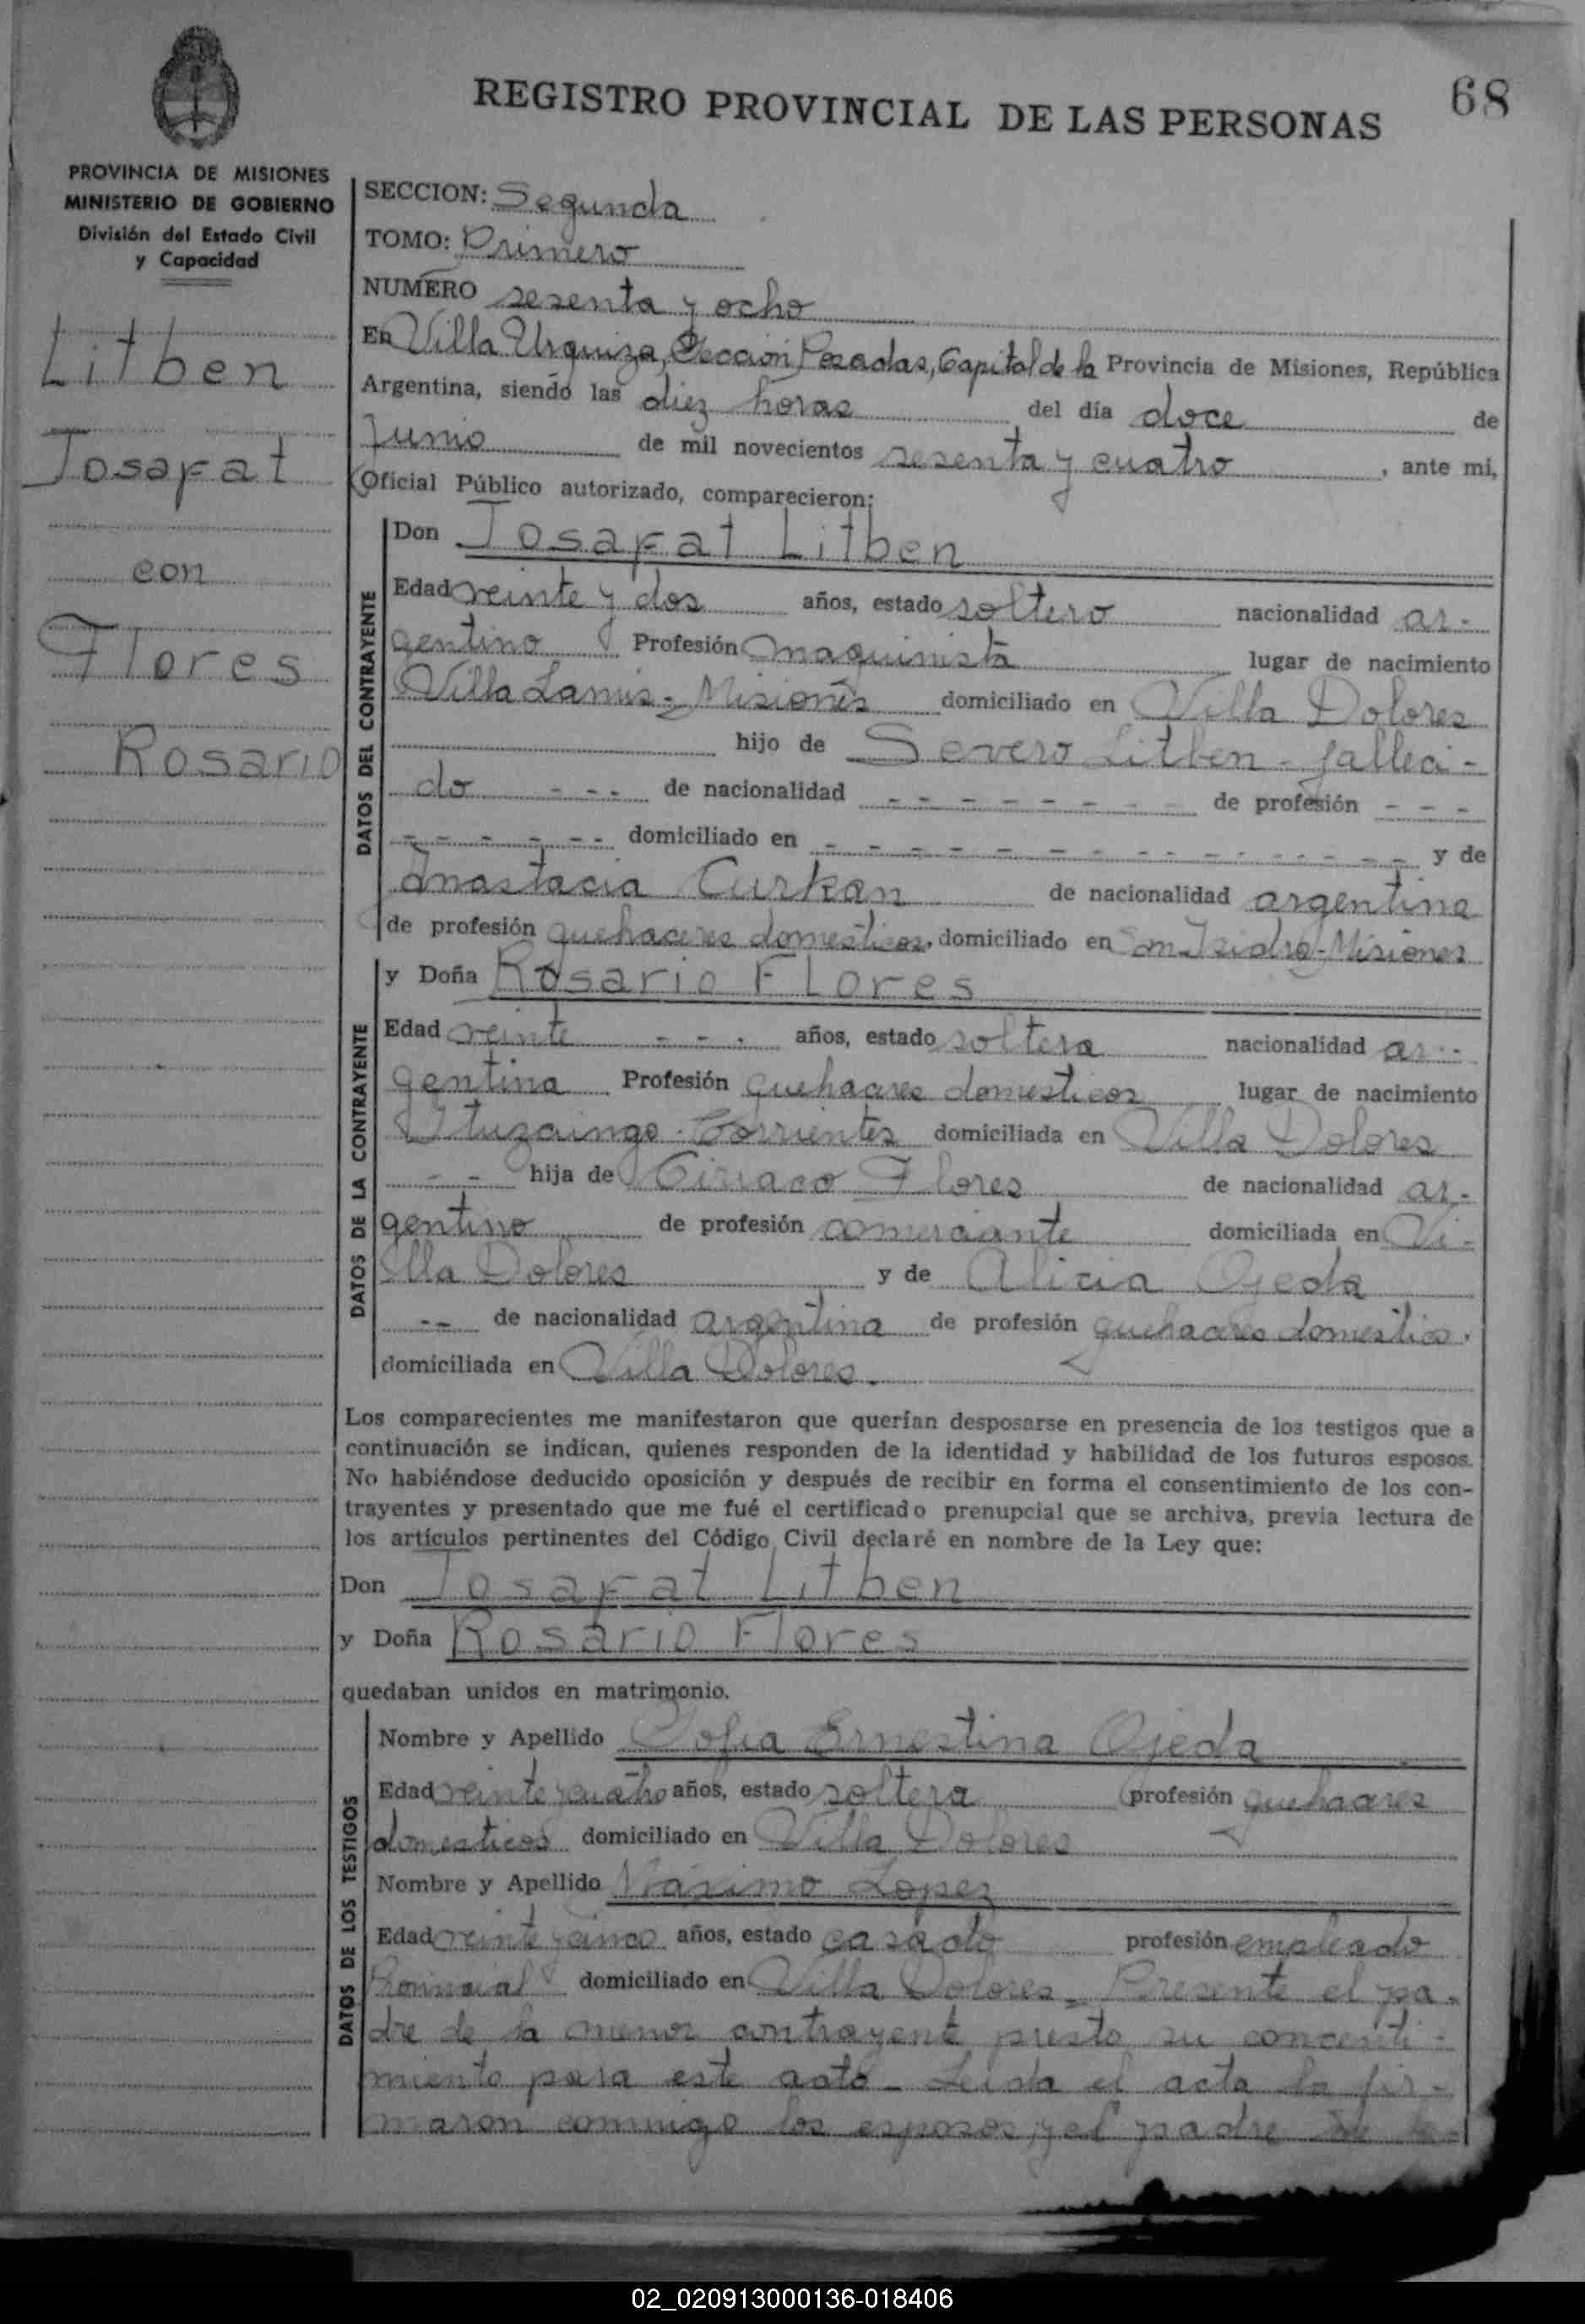 68
REGISTRO PROVINCIAL DE LAS PERSONAS
PROVINCIA DE MISIONES
MINISTERIO DE GOBIERNO
División del Estado Civil
y Capacidad
Litben
Josafat
con
Flores
Rosario
SECCION: Segunda
TOMO: Primero
NUMERO sesenta y ocho
En Villa Urquiza, Sección Posadas, Capital de la Provincia de Misiones, República
Argentina, siendo las diez horas del día doce de
Junio de mil novecientos sesenta y cuatro, ante mi,
Oficial Público autorizado, comparecieron:
DATOS DEL CONTRAYENTE
Don Josafat Litben
Edad veinte y dos años, estado soltero nacionalidad ar-
gentino Profesión maquinista lugar de nacimiento
Villa Lanus - Misiones domiciliado en Villa Dolores
hijo de Severo Litben - falleci-
do - - - de nacionalidad - - - - - - - - de profesión - - -
- - - - - - domiciliado en - - - - - - - - - - - - - - - y de
Anastacia Curkan de nacionalidad argentina
de profesión quehaceres domesticos, domiciliado en San Isidro - Misiones
DATOS DE LA CONTRAYENTE
y Doña Rosario Flores
Edad veinte - - - años, estado soltera nacionalidad ar-
gentina Profesión quehaceres domesticos lugar de nacimiento
Ituzaingo - Corrientes domiciliada en Villa Dolores
- - hija de Ciriaco Flores de nacionalidad ar-
gentino de profesión comerciante domiciliada en Vi-
lla Dolores y de Alicia Ojeda
-- de nacionalidad argentina de profesión quehaceres domestico.
domiciliada en Villa Dolores.
Los comparecientes me manifestaron que querían desposarse en presencia de los testigos que a
continuación se indican, quienes responden de la identidad y habilidad de los futuros esposos.
No habiéndose deducido oposición y después de recibir en forma el consentimiento de los con-
trayentes y presentado que me fué el certificado prenupcial que se archiva, previa lectura de
los artículos pertinentes del Código Civil declaré en nombre de la Ley que:
Don Josafat Litben
y Doña Rosario Flores
quedaban unidos en matrimonio.
DATOS DE LOS TESTIGOS
Nombre y Apellido Sofia Ernestina Ojeda
Edad veinte y cuatro años, estado soltera profesión quehaceres
domesticos domiciliado en Villa Dolores
Nombre y Apellido Máximo Lopez
Edad veinte y cinco años, estado casado profesión empleado
Provincial domiciliado en Villa Dolores - Presente el pa-
dre de la menor contrayente presto su concenti-
miento para este acto - Leida el acta la fir-
maron conmigo los esposos, y el padre de la
02_020913000136-018406